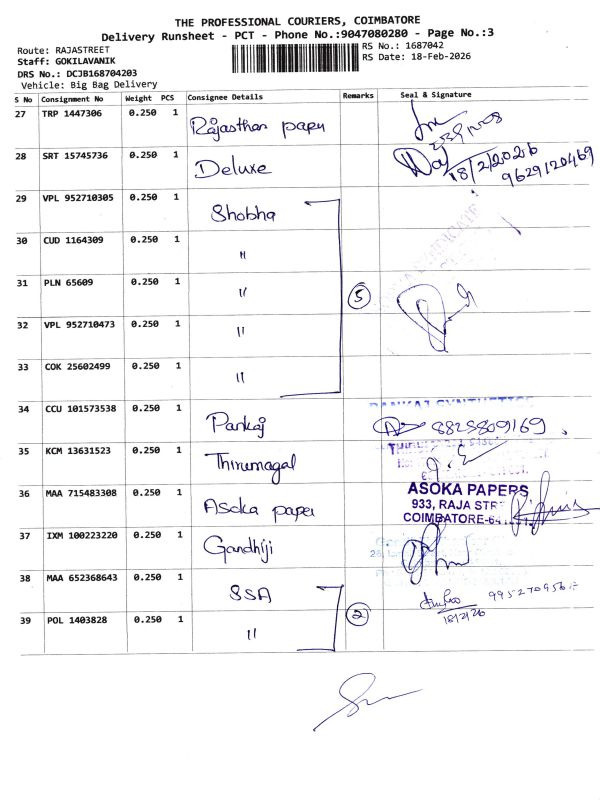 THE PROFESSIONAL COURIERS, COIMBATORE
Delivery Runsheet - PCT - Phone No.:9047080280 - Page No.:3
Route: RAJASTREET
RS No.: 1687042
Staff: GOKILAVANIK
RS Date: 18-Feb-2026
DRS No.: DCJB168704203
Vehicle: Big Bag Delivery
S No Consignment No Weight PCS Consignee Details Remarks Seal & Signature
27 TRP 1447306 0.250 1 Rajasthan paper
28 SRT 15745736 0.250 1 Deluxe 18/2/2026 9629120469
29 VPL 952710305 0.250 1 Shobha
30 CUD 1164309 0.250 1 "
31 PLN 65609 0.250 1 " 5
32 VPL 952710473 0.250 1 "
33 COK 25602499 0.250 1 "
34 CCU 101573538 0.250 1 Pankaj PANKAJ SYNTHETICS 8825809169
35 KCM 13631523 0.250 1 Thirumagal
36 MAA 715483308 0.250 1 Asoka paper ASOKA PAPERS
933, RAJA STR
COIMBATORE-64
37 IXM 100223220 0.250 1 Gandhiji
38 MAA 652368643 0.250 1 SSA 18/2/26
39 POL 1403828 0.250 1 " 2